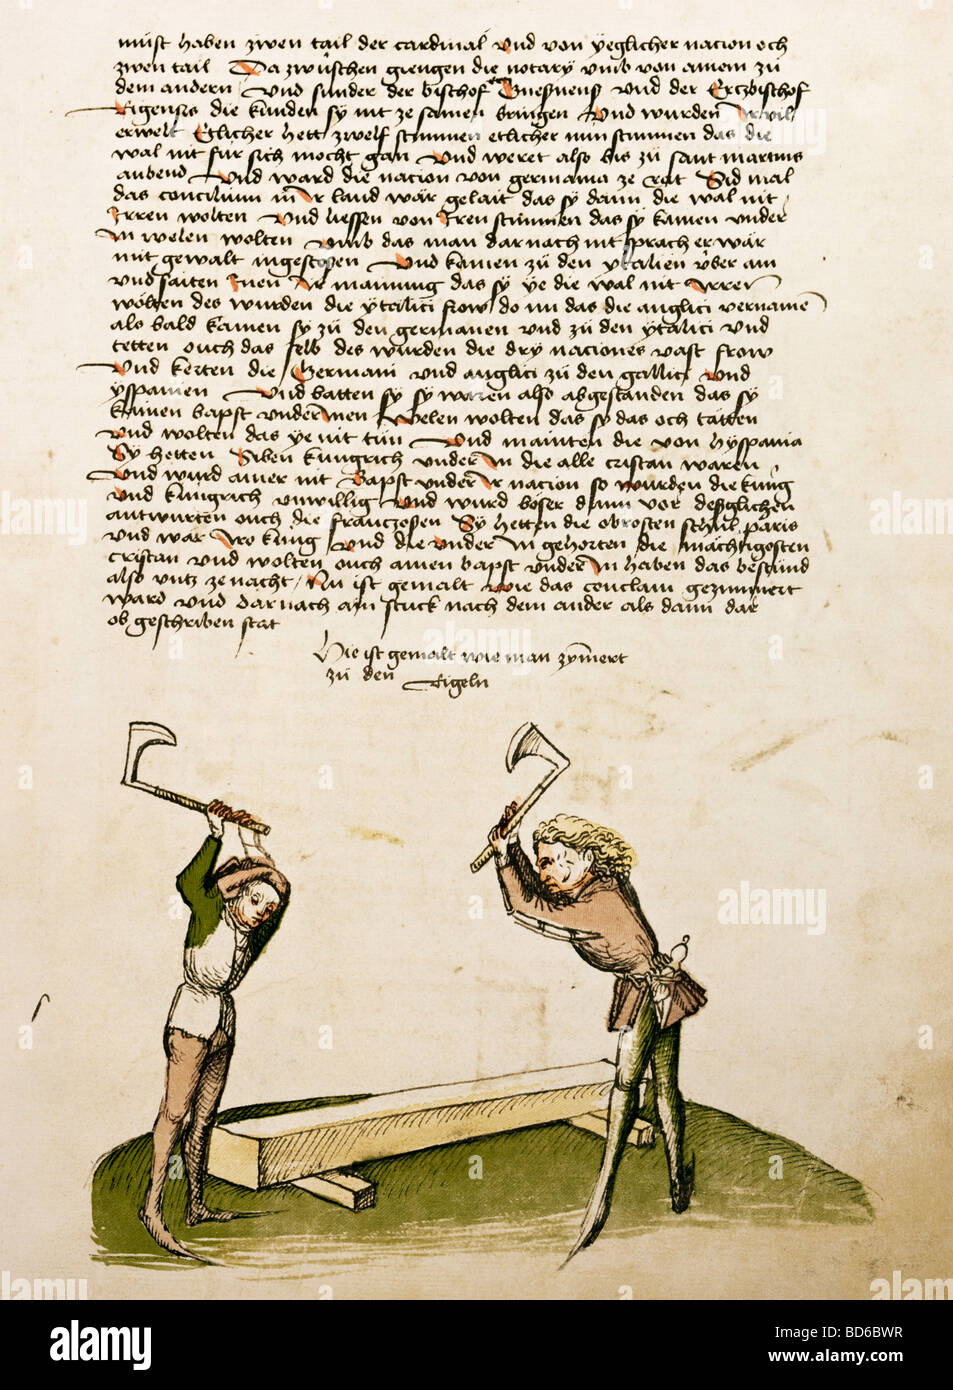 must haben zwen tail der cardinal vnd von yeglicher nacion och
zwen tail Da zwüschen giengen die notary vmb von ainem zü
dem andern vnd sunder der bischof Gnesnens vnd der Ertzbischof
Rigensis die kunden sy nit ze samen bringen Vnd wurden vil
erwelt Etlicher hett zwelf stimmen etlicher nün stimmen das die
wal nit für sich mocht gan Vnd weret also bis zü sant martins
aubend Vnd ward die nacion von germania ze rat Sid mal
das concilium in Ir land wär gelait das sy dann die wal nit
Irren wolten Vnd liessen von Iren stimmen das sy kamen vnder
In welen wolten vmb das man dar nach nit sprach er wär
mit gewalt ingestossen Vnd kamen zü den ytalien über ain
vnd saiten Inen Ir mainung das sy ye die wal nit Irren
wölten des wurden die ytalici frow do nu das die anglici vernamen
als bald kamen sy zü den germanen vnd zü den ytalici vnd
tetten ouch das selb des wurden die dry naciones vast frow
Vnd kerten die Germani vnd anglici zü den gallici vnd
yspanien Vnd batten sy sy wären also abgestanden das sy
kainen bapst vnder Inen welen wolten das sy das och tätten
vnd wolten das ye nit tün Vnd mainten die von hyspania
Sy hetten Siben küngrich vnder In die alle cristan waren
Vnd wurd ainer nit Bapst vnder Ir nacion so wurden die küng
vnd küngrich vnwillig vnd wurd böser dann vor desglichen
antwurten ouch die franczosen Sy hetten die obrosten schül paris
vnd wär Iro küng vnd die vnder In gehorten die mächtigosten
cristan vnd wolten ouch ainen bapst vnder In haben das bestünd
also vntz ze nacht Nu ist gemalt wie das conclavi gezimmert
ward vnd dar nach ain stuck nach dem ander als dann dar
ob geschriben stat
Hie ist gemalt wie man zymert
zü den Rigeln
alamy
alamy
alamy
Image ID: BD6BWR
www.alamy.com